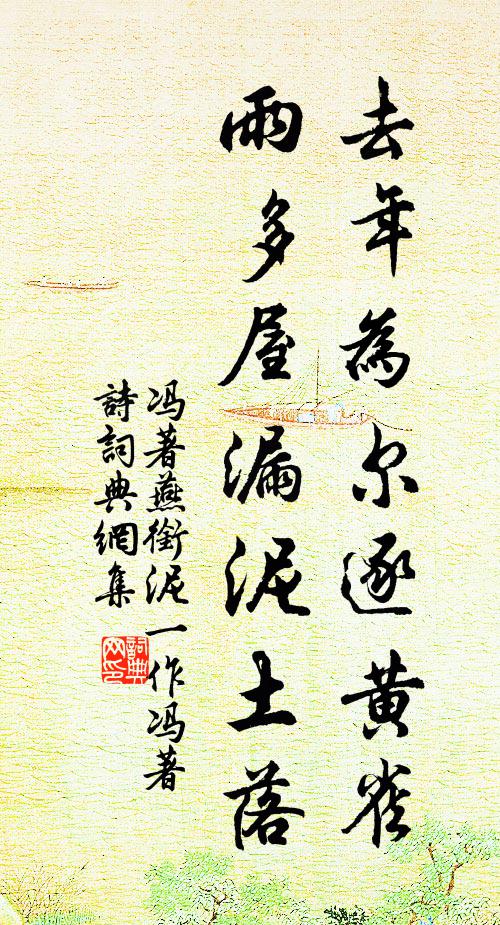 去年為尔逐黄雀
雨多屋漏泥土落
冯著燕銜泥一作冯著
詩詞典網集
詞典
网印